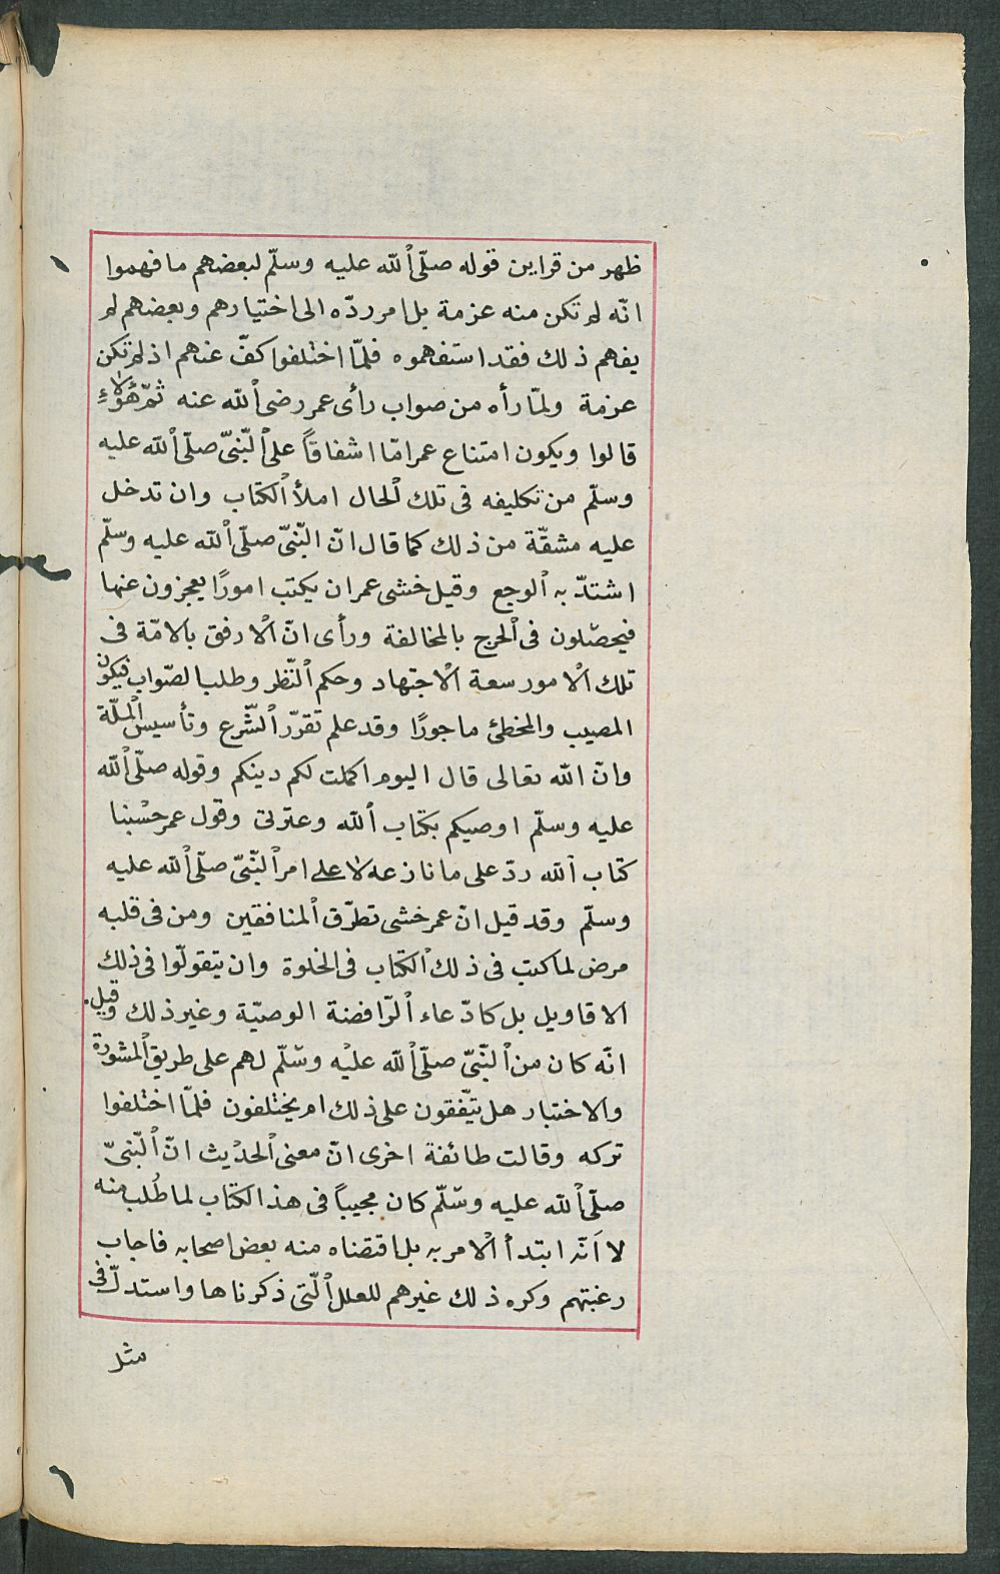 ظهر من قراين قوله صلّى الله عليه وسلّم لبعضهم ما فهموا
انّه لم تكن منه عزمة بل امر ردّه الى اختيارهم وبعضهم لم
يفهم ذلك فقد استفهموه فلمّا اختلفوا كفّ عنهم اذ لم تكن
عزمة ولمّا رأه من صواب رأى عمر رضى الله عنه ثمّ هؤلاء
قالوا ويكون امتناع عمر امّا اشفاقاً على النّبىّ صلّى الله عليه
وسلّم من تكليفه فى تلك الحال املأ الكتاب وان تدخل
عليه مشقّة من ذلك كما قال انّ النّبىّ صلّى الله عليه وسلّم
اشتدّ به الوجع وقيل خشى عمر ان يكتب امورًا يعجزون عنها
فيحصّلون فى الحرج بالمخالفة ورأى انّ الارفق بالامّة فى
تلك الامور سعة الاجتهاد وحكم النّظر وطلب الصّواب فيكون
المصيب والمخطئ ماجورًا وقد علم تقرّر الشّرع وتأسيس الملّة
وانّ الله تعالى قال اليوم اكملت لكم دينكم وقوله صلّى الله
عليه وسلّم اوصيكم بكتاب الله وعترتى وقول عمر حسْبنا
كتاب الله ردّ على ما نازعه لا على امر النّبىّ صلّى الله عليه
وسلّم وقد قيل انّ عمر خشى تطرّق المنافقين ومن فى قلبه
مرض لما كتب فى ذلك الكتاب فى الخلوة وان يتقوّلوا فى ذلك
الاقاويل بل كادّعاء الرّافضة الوصيّة وغير ذلك وقيل
انّه كان من النّبىّ صلّى الله عليه وسّلّم لهم على طريق المشورة
والاختبار هل يتّفقون على ذلك ام يختلفون فلمّا اختلفوا
تركه وقالت طائفة اخرى انّ معنى الحديث انّ النّبىّ
صلّى الله عليه وسّلّم كان مجيباً فى هذا الكتاب لما طُلب منه
لا اَنّه ابتدأ الامر به بل اقتضاه منه بعض اصحابه فاجاب
رغبتهم وكره ذلك غيرهم للعلل الّتى ذكرناها واستدلّ فى
مثل